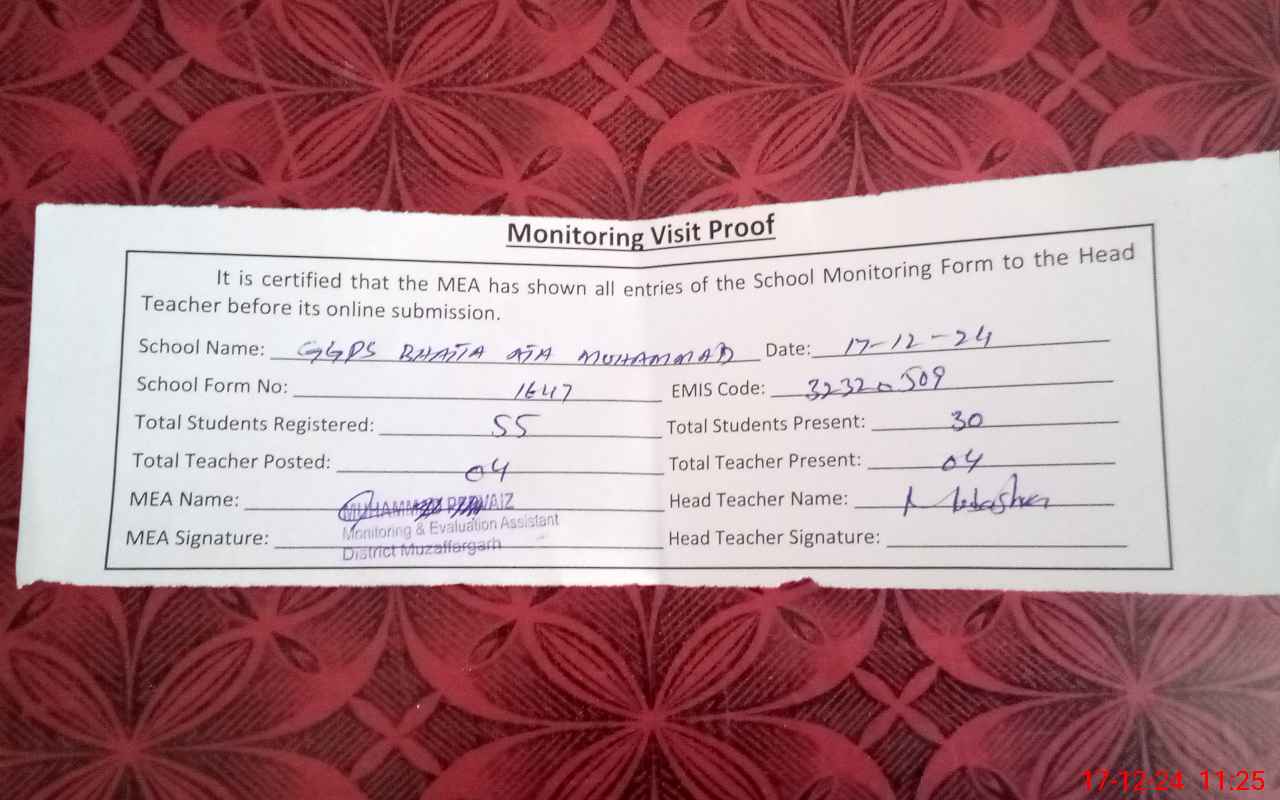 Monitoring Visit Proof
It is certified that the MEA has shown all entries of the School Monitoring Form to the Head
Teacher before its online submission.
School Name: GGPS BHATTA ATA MUHAMMAD Date: 17-12-24
School Form No: 1647 EMIS Code: 32320509
Total Students Registered: 55 Total Students Present: 30
Total Teacher Posted: 04 Total Teacher Present: 04
MEA Name: MUHAMMAD PERVAIZ Head Teacher Name:
Monitoring & Evaluation Assistant
MEA Signature: Head Teacher Signature:
District Muzaffargarh
17-12-24 11:25